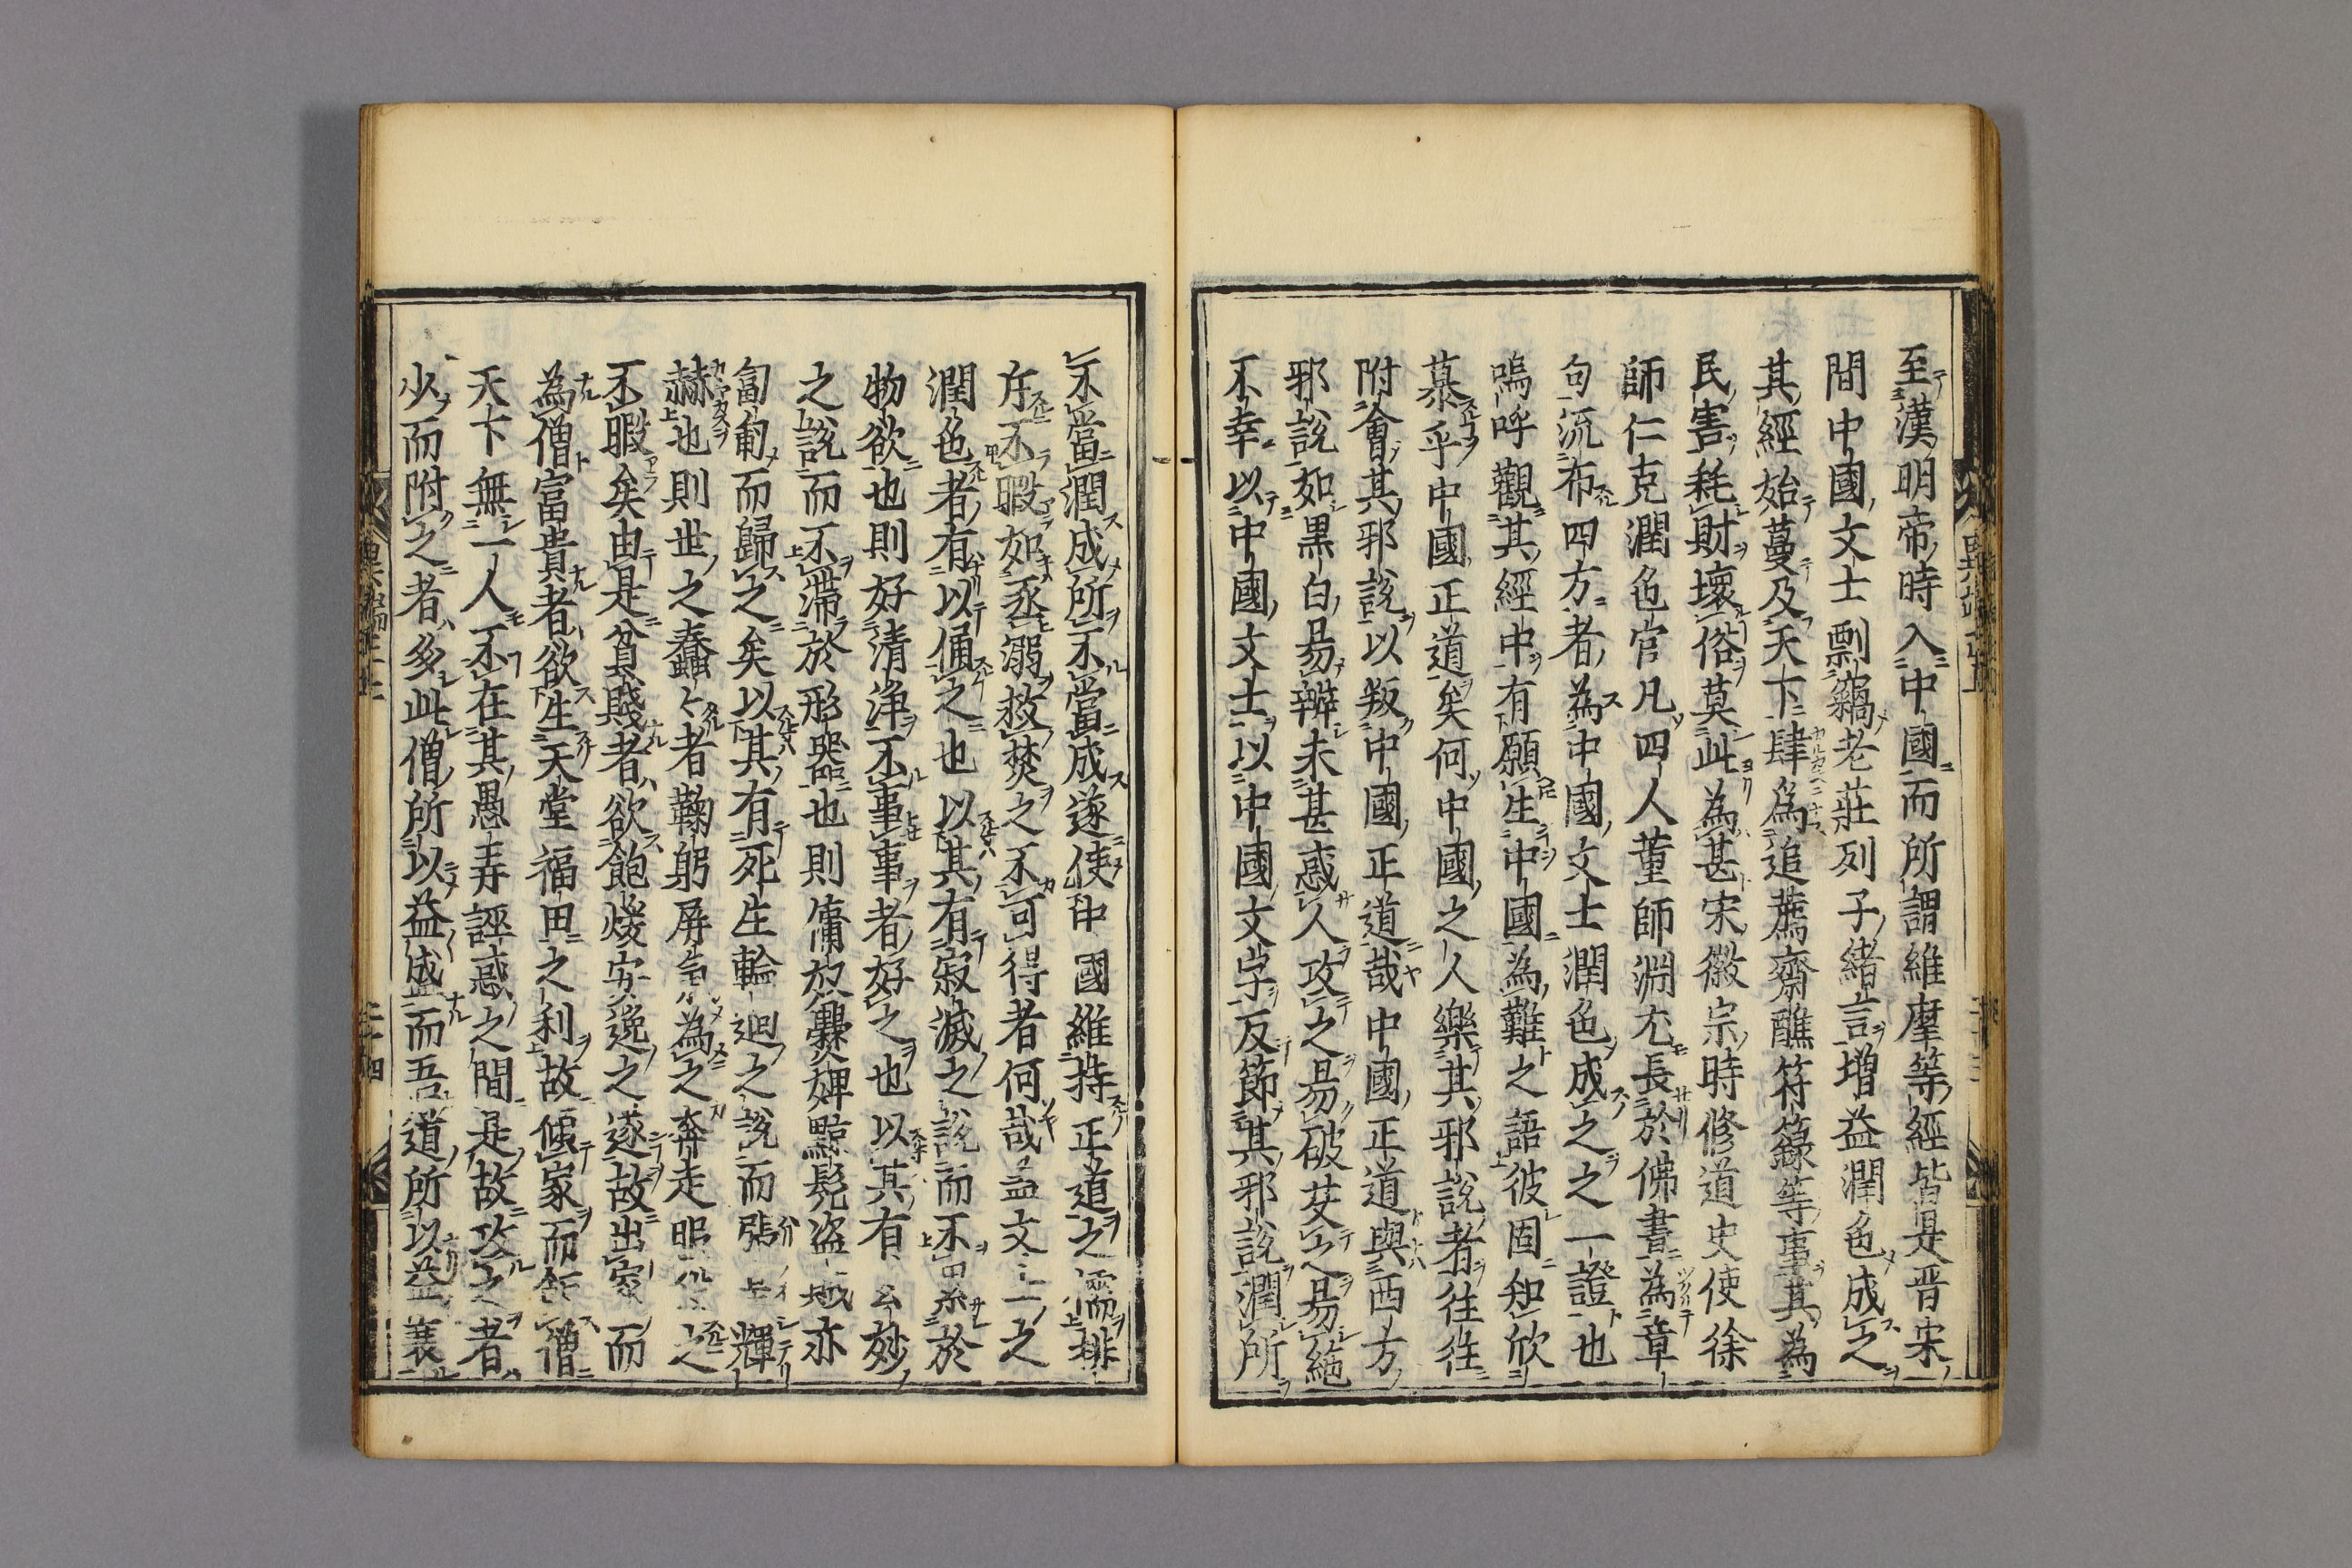 至漢明帝時入中國而所謂維摩等經皆是晋宋
間中國文士剽竊老莊列子緒言增益潤色成之
其經始蔓及天下肆為追薦齋醮符籙等事其為
民害耗財壞俗莫此為甚宋徽宗時修道史使徐
師仁克潤色官凡四人董師淵尤長於佛書為章
句流布四方者為中國文士潤色成之之一證也
嗚呼觀其經中有願生中國為難之語彼固知欣
慕乎中國正道矣何中國之人樂其邪説者往往
附會其邪説以叛中國正道哉中國正道與西方
邪説如黒白易辨未甚惑人攻之易破芟之易絕
不幸以中國文士以中國文字反節其邪説潤所
不當潤成所不當成遂使中國維持正道之儒排
斥不暇如丞溺救焚之不可得者何哉盖文士之
潤色者有以俑之也以其有寂滅之説而不累於
物欲也則好清淨不事事者好之也以其有玄妙
之説而不滯於形器也則傭奴爨婢黥髡盗賊亦
匍匐而歸之矣以其有死生輪迴之説而張皇輝
赫也則世之蠢々者鞠躬屏氣為之奔走服役之
不暇矣由是貧賤者欲飽煖安逸之遂故出家而
為僧富貴者欲生天堂福田之利故傾家而飯僧
天下無一人不在其愚弄誣惑之間是故攻之者
少而附之者多此僧所以益盛而吾道所以益衰